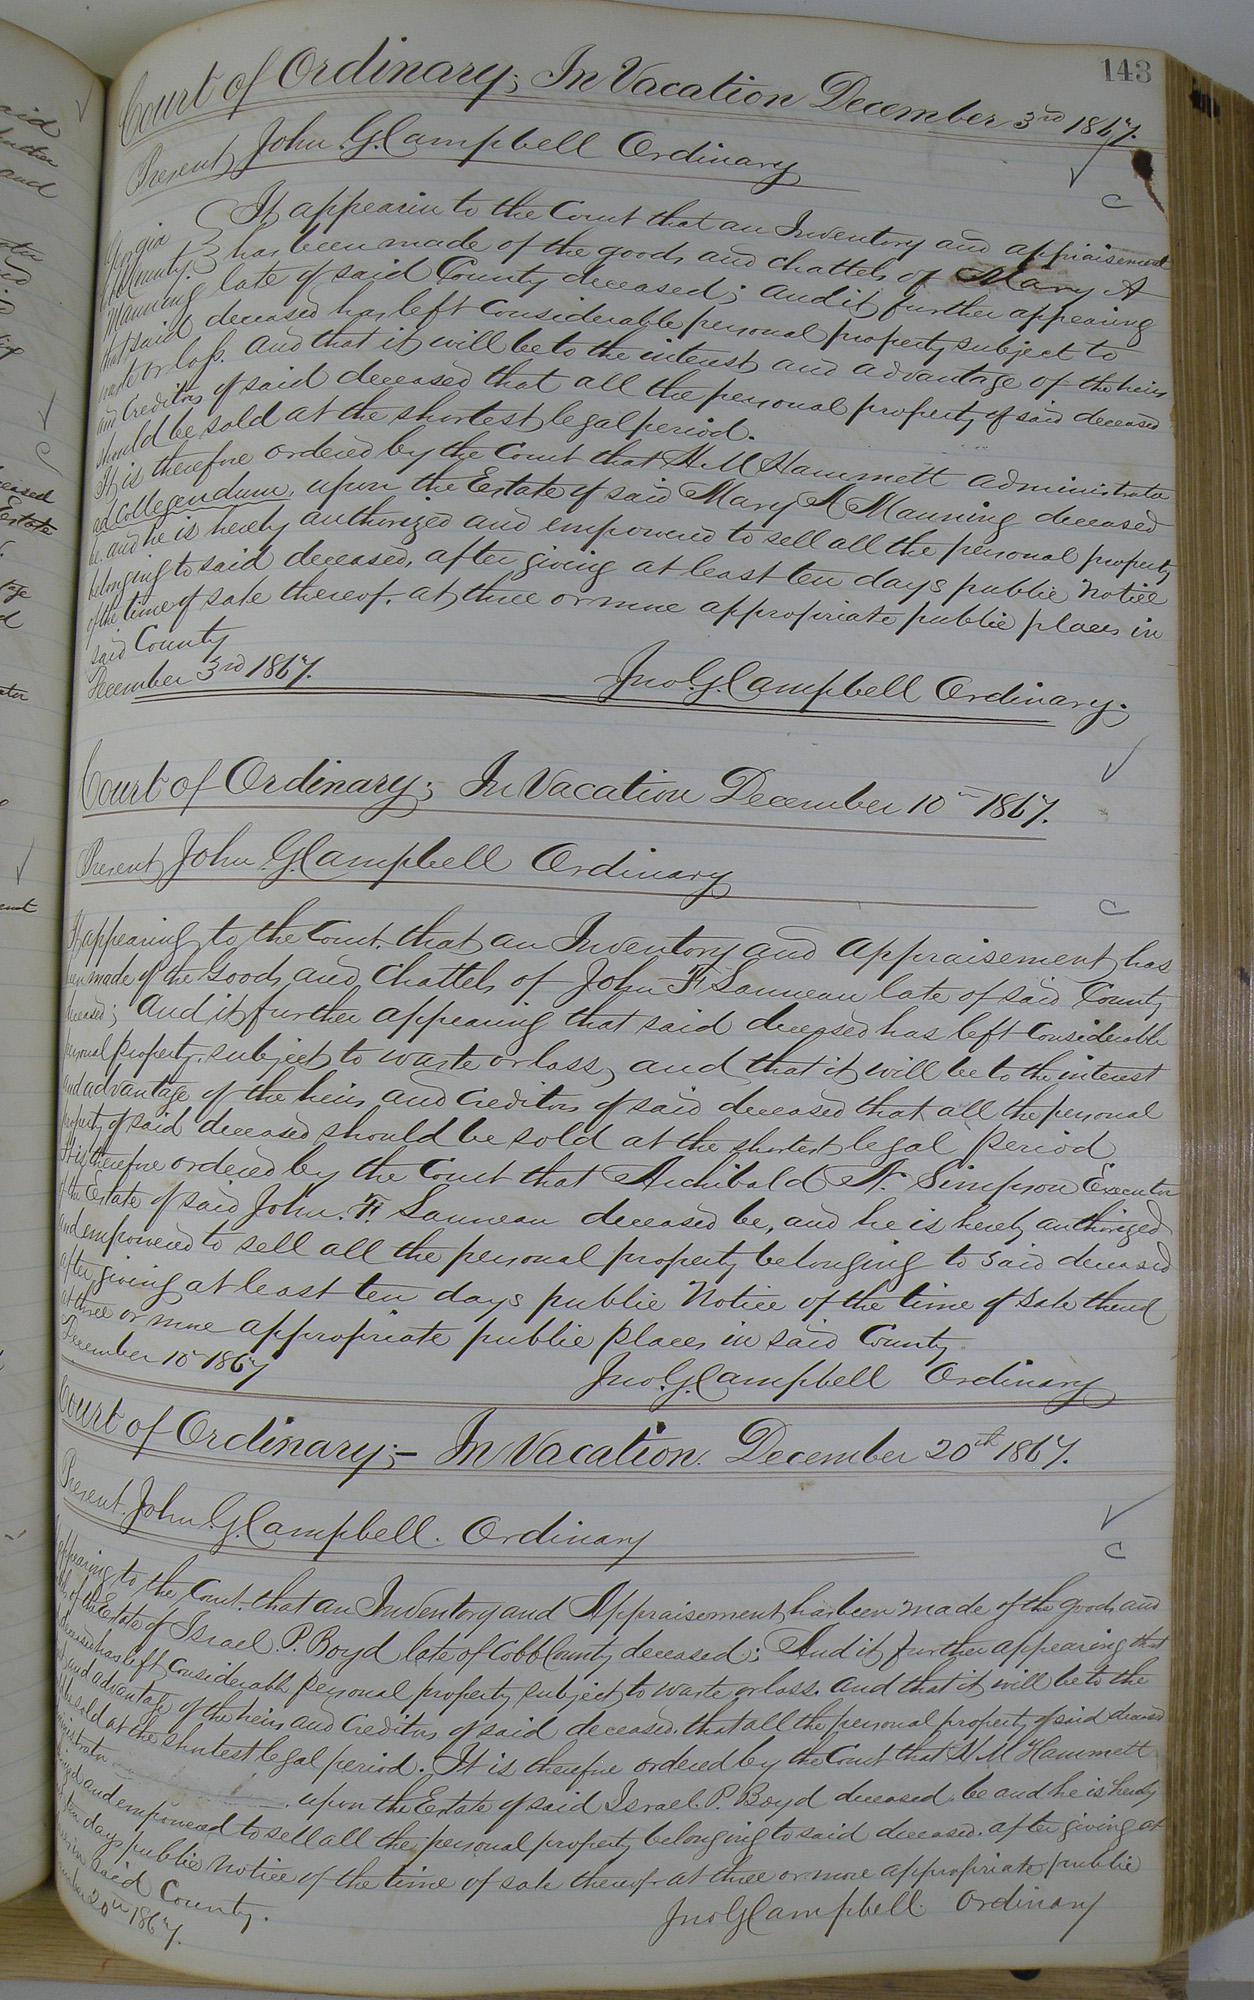 143
Court of Ordinary; In Vacation December 3rd 1867.
Present, John. G. Campbell Ordinary
Georgia
Cobb County. } It appearin to the Court that an Inventory and appraisement
has been made of the goods and chattels of Mary A
Manning late of said County deceased; and it further appearing
that said deceased has left considerable personal property subject to
waste or loss. and that it will be to the interest and advantage of the heirs
and Creditors of said deceased that all the personal property of said deceased
should be sold at the shortest legal period.
It is therefore ordered by the Court that H. M Hammett administrator
ad collegendum. upon the Estate of said Mary A Manning deceased
be. and he is hereby authorized and empowered to sell all the personal property
belonging to said deceased, after giving at least ten days public Notice
of the time of sale thereof. at three or more appropriate public places in
said County
December 3rd 1867.
Jno. G. Campbell Ordinary.
Court of Ordinary; In Vacation December 10th 1867.
Present, John G. Campbell Ordinary
It appearing to the Court. that an Inventory and appraisement has
been made of the Goods and Chattels of John F. Sanneau late of said County
deceased; and it further appearing that said deceased has left Considerable
personal property. subject to waste or loss, and that it will be to the interest
and advantage of the heirs and Creditors of said deceased that all the personal
property of said deceased should be sold at the shortest legal period
It is therefore ordered by the Court that Archibald N. Simpson Executor
of the Estate of said John. F. Sanneau deceased be, and he is hereby authorized
and empowered to sell all the personal property belonging to said deceased
after giving at least ten days public Notice of the time of sale thereof
at three or more appropriate public places in said County
December 10th 1867
Jno. G. Campbell Ordinary
Court of Ordinary;- In Vacation. December 20th 1867.
Present. John G. Campbell. Ordinary
appearing to the Court. that an Inventory and Appraisement has been made of the goods and
of the Estate of Israel P. Boyd late of Cobb County deceased; And it further appearing that
deceased has left Considerable personal property subject to waste or loss. and that it will be to the
and advantage of the heirs and Creditors of said deceased. that all the personal property of said deceased
be sold at the shortest legal period. It is therefore ordered by the Court that H. M Hammett
upon the Estate of said Israel. P. Boyd deceased. be and he is hereby
and empowered to sell all the personal property belonging to said deceased. after giving at
ten days public notice of the time of sale thereof at three or more appropriate public
in said County.
20th 1867.
Jno G Campbell. Ordinary